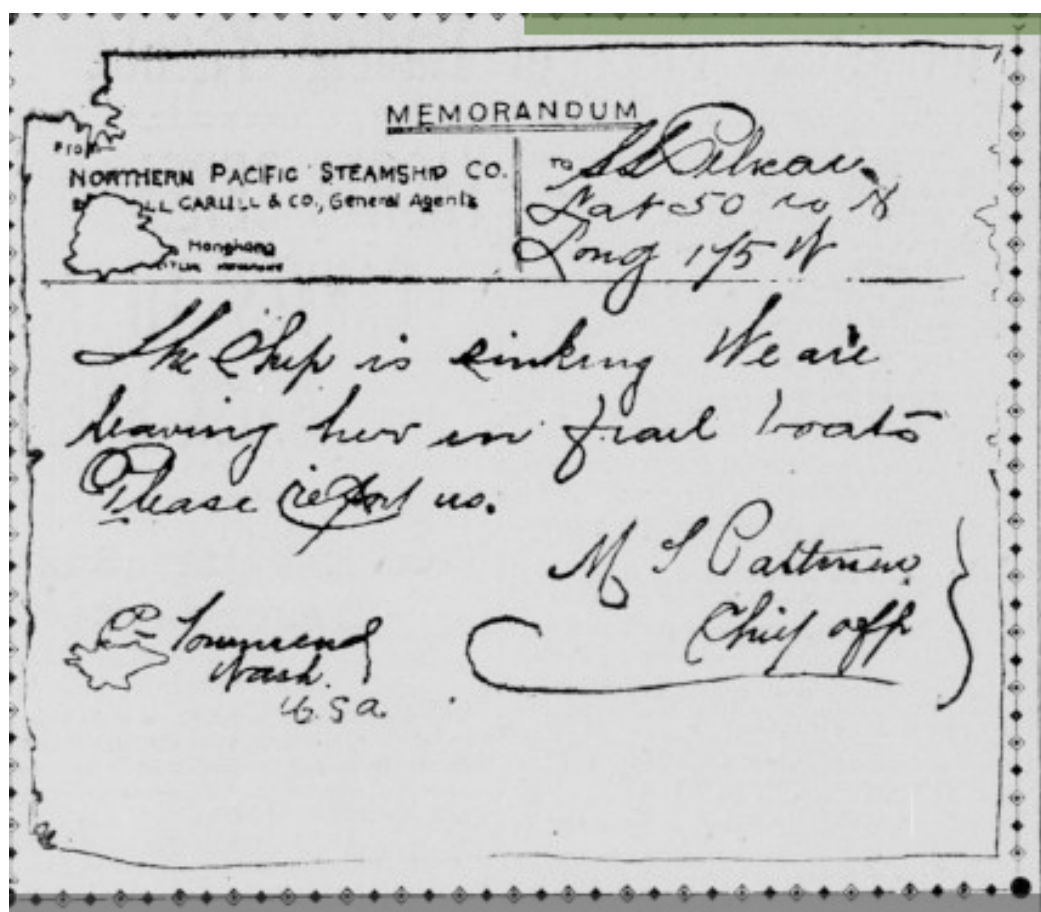 MEMORANDUM
From
NORTHERN PACIFIC STEAMSHIP CO.
CARLILL & CO., General Agents
Hongkong
TO SS Pelican.
Lat 50 N
Long 175 W
The Ship is sinking We are
leaving her in frail boats
Please report us.
M S Patterson
Chief off
P Townsend
Wash.
U.S.a.